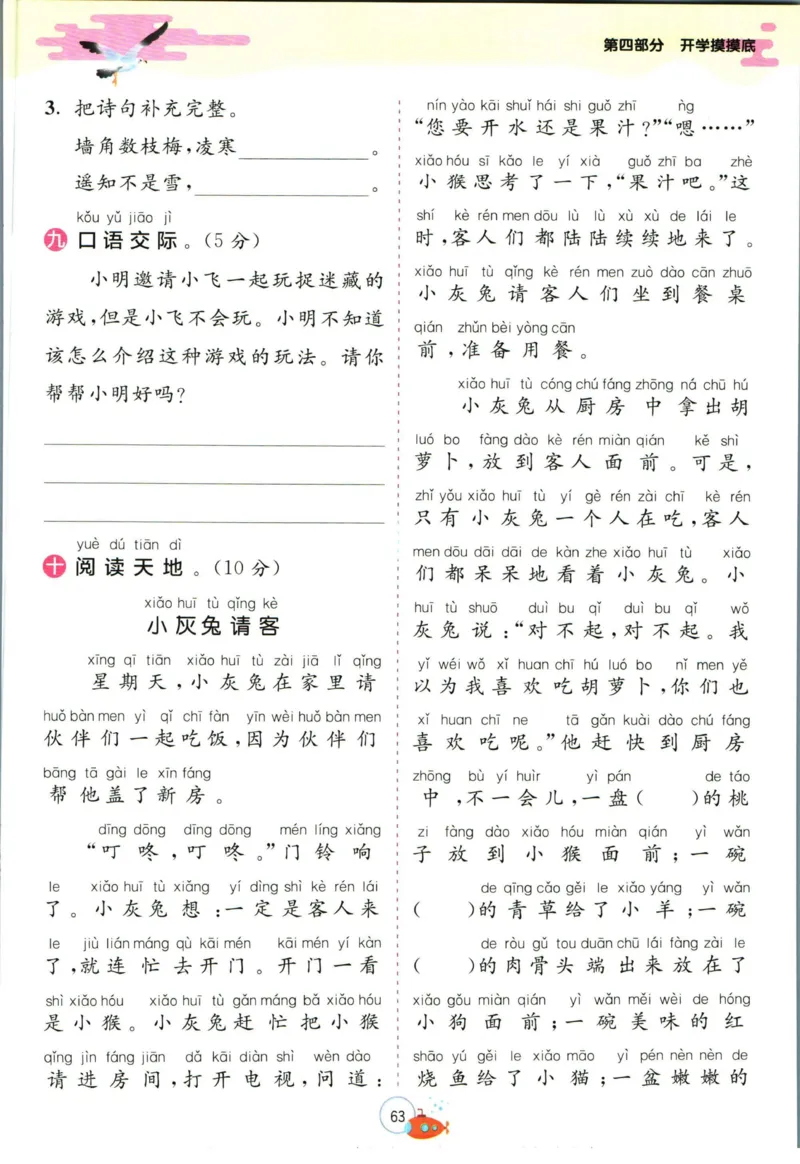 第四部分 开学摸摸底
3. 把诗句补充完整。
墙角数枝梅,凌寒____________。
遥知不是雪,________________。
kǒu yǔ jiāo jì
九 口语交际。(5分)
小明邀请小飞一起玩捉迷藏的
游戏,但是小飞不会玩。小明不知道
该怎么介绍这种游戏的玩法。请你
帮帮小明好吗?
yuè dú tiān dì
十 阅读天地。(10分)
xiǎo huī tù qǐng kè
小灰兔请客
xīng qī tiān xiǎo huī tù zài jiā lǐ qǐng
星期天,小灰兔在家里请
huǒ bàn men yì qǐ chī fàn yīn wèi huǒ bàn men
伙伴们一起吃饭,因为伙伴们
bāng tā gài le xīn fáng
帮他盖了新房。
dīng dōng dīng dōng mén líng xiǎng
“叮咚,叮咚。”门铃响
le xiǎo huī tù xiǎng yí dìng shì kè rén lái
了。小灰兔想:一定是客人来
le jiù lián máng qù kāi mén kāi mén yí kàn
了,就连忙去开门。开门一看
shì xiǎo hóu xiǎo huī tù gǎn máng bǎ xiǎo hóu
是小猴。小灰兔赶忙把小猴
qǐng jìn fáng jiān dǎ kāi diàn shì wèn dào
请进房间,打开电视,问道:
nín yào kāi shuǐ hái shi guǒ zhī ǹg
“您要开水还是果汁?”“嗯……”
xiǎo hóu sī kǎo le yí xià guǒ zhī ba zhè
小猴思考了一下,“果汁吧。”这
shí kè rén men dōu lù lù xù xù de lái le
时,客人们都陆陆续续地来了。
xiǎo huī tù qǐng kè rén men zuò dào cān zhuō
小灰兔请客人们坐到餐桌
qián zhǔn bèi yòng cān
前,准备用餐。
xiǎo huī tù cóng chú fáng zhōng ná chū hú
小灰兔从厨房中拿出胡
luó bo fàng dào kè rén miàn qián kě shì
萝卜,放到客人面前。可是,
zhǐ yǒu xiǎo huī tù yí gè rén zài chī kè rén
只有小灰兔一个人在吃,客人
men dōu dāi dāi de kàn zhe xiǎo huī tù xiǎo
们都呆呆地看着小灰兔。小
huī tù shuō duì bu qǐ duì bu qǐ wǒ
灰兔说:“对不起,对不起。我
yǐ wéi wǒ xǐ huan chī hú luó bo nǐ men yě
以为我喜欢吃胡萝卜,你们也
xǐ huan chī ne tā gǎn kuài dào chú fáng
喜欢吃呢。”他赶快到厨房
zhōng bù yí huìr yì pán de táo
中,不一会儿,一盘( )的桃
zi fàng dào xiǎo hóu miàn qián yì wǎn
子放到小猴面前;一碗
de qīng cǎo gěi le xiǎo yáng yì wǎn
( )的青草给了小羊;一碗
de ròu gǔ tou duān chū lái fàng zài le
( )的肉骨头端出来放在了
xiǎo gǒu miàn qián yì wǎn měi wèi de hóng
小狗面前;一碗美味的红
shāo yú gěi le xiǎo māo yì pén nèn nèn de
烧鱼给了小猫;一盆嫩嫩的
63